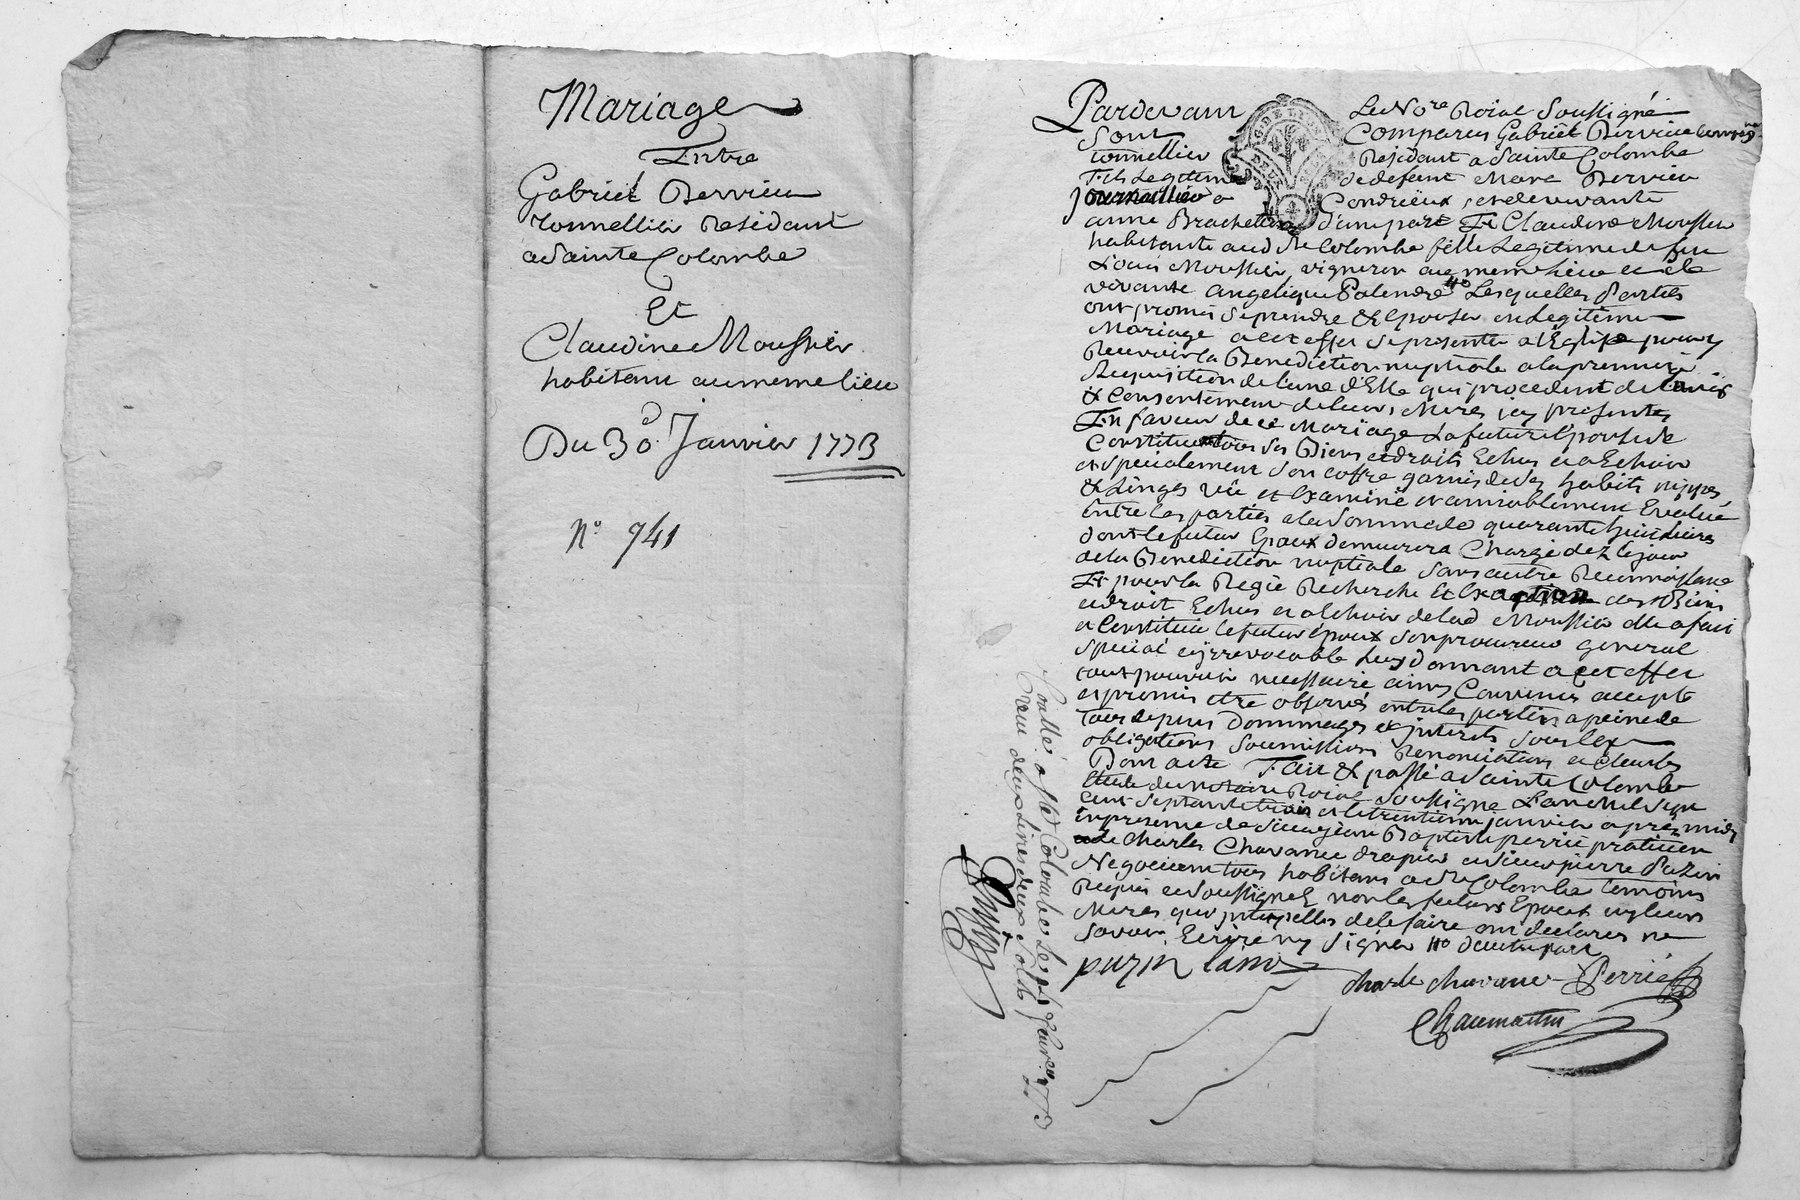 Mariage
Entre
Gabriel Dervieu
tonnellier Residant
a Sainte Colombe
Et
Claudine Moussier
habitant au meme lieu
Du 30 Janvier 1773
N.º 741
Pardevant Le No.re Roial Soussigné
Sont Comparus Gabriel Dervieu
tonnellier Residant a Sainte Colombe
fils Legitime de defunt Marc Dervieu
Journaillier a Condrieux et de vivante
anne Brachet d'une part Et Claudine Moussier
habitante aud Ste Colombe fille Legitime de feu
Louis Moussier vigneron au meme lieu et de
vivante angelique Palendre Lesquelles Parties
ont promis se prendre & Epouser en Legitime
Mariage a cet effet se presenter a l'Eglise pour y
Recevoir la Benediction nuptiale a la premiere
Requisition de l'une d'Elle qui procedent de l'avis
& Consentement de leurs Meres icy presentes
En faveur de ce Mariage La future Epouse se
Constitue tous ses Biens et droits Echus et a Echoir
et specialement son coffre garni de ses habits nippes
& Linges vû et Examiné et amiablement Evalué
Entre les parties a la Somme de quarante huit Livres
dont le futur Epoux demeurera Chargé dez le jour
de la Benediction nuptiale sans autre Reconnoissance
Et pour la Regie Recherche Et Exaction des Biens
et droit Echus et a Echoir de lad Moussier elle a fait
et Constitué le futur époux son procureur general
special et irrevocable Luy donnant a cet effet
tout pouvoir necessaire ainsy Convenu accepté
et promis etre observé entre les parties a peine de
tous depens dommages et interets sous les
obligations Soumissions Renonciations et Clauses
Dont acte Fait & passé a Sainte Colombe
Etude du notaire Roial Soussigné L'an Mil Sept
cent Septante trois et le trentieme janvier apres midy
En presence de Sieur jean Baptiste perrié praticien
de Charles Chavanne drapier et sieur pierre Pazin
Negociant tous habitans a Ste Colombe temoins
Requis et Soussignez non les futurs Epoux ny leurs
Meres qui interpellés de le faire ont declarés ne
Savoir Ecrire ny Signer
charle chavanne Perrié
Chaumartin
Collé a Ste Colombe Le
Reçu deux Livres deux Sols